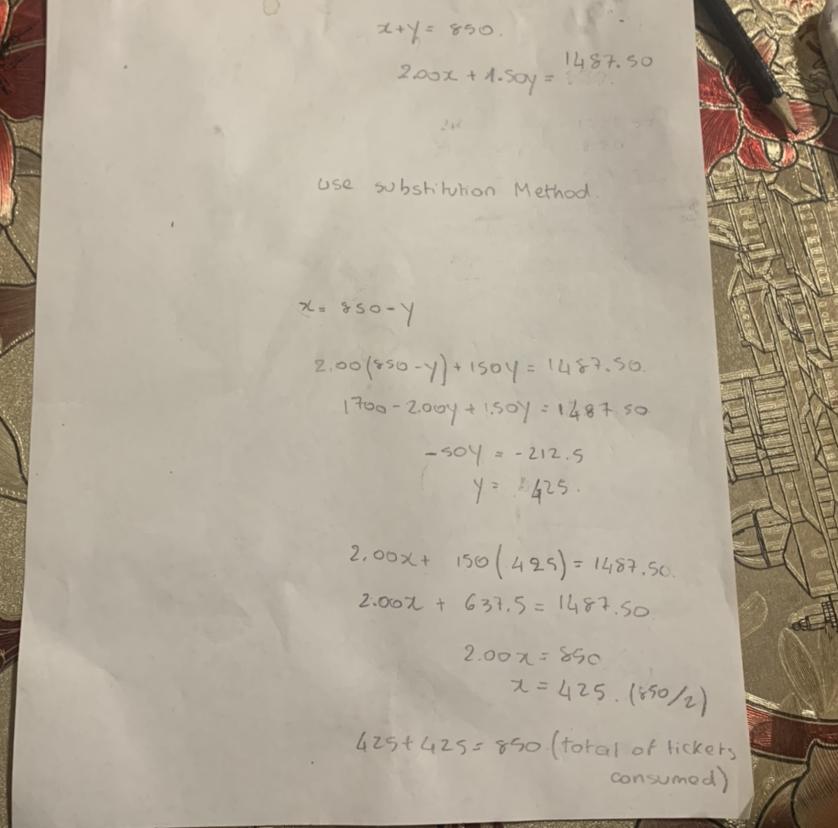 x+y = 850.
2.00x + 1.50y = 1487.50
use substitution Method.
x = 850-y
2.00(850-y)+150y = 1487.50.
1700-2.00y+1.50y = 1487.50
-50y = -212.5
y = 425.
2.00x+ 150(425) = 1487.50.
2.00x + 637.5 = 1487.50
2.00x = 850
x = 425. (850/2)
425+425 = 850 (total of tickets
consumed)